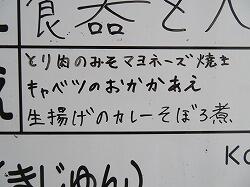 食器と
とり肉のみそマヨネーズ焼き
キャベツのおかかあえ
生揚げのカレーそぼろ煮
きじゅん)
Ko